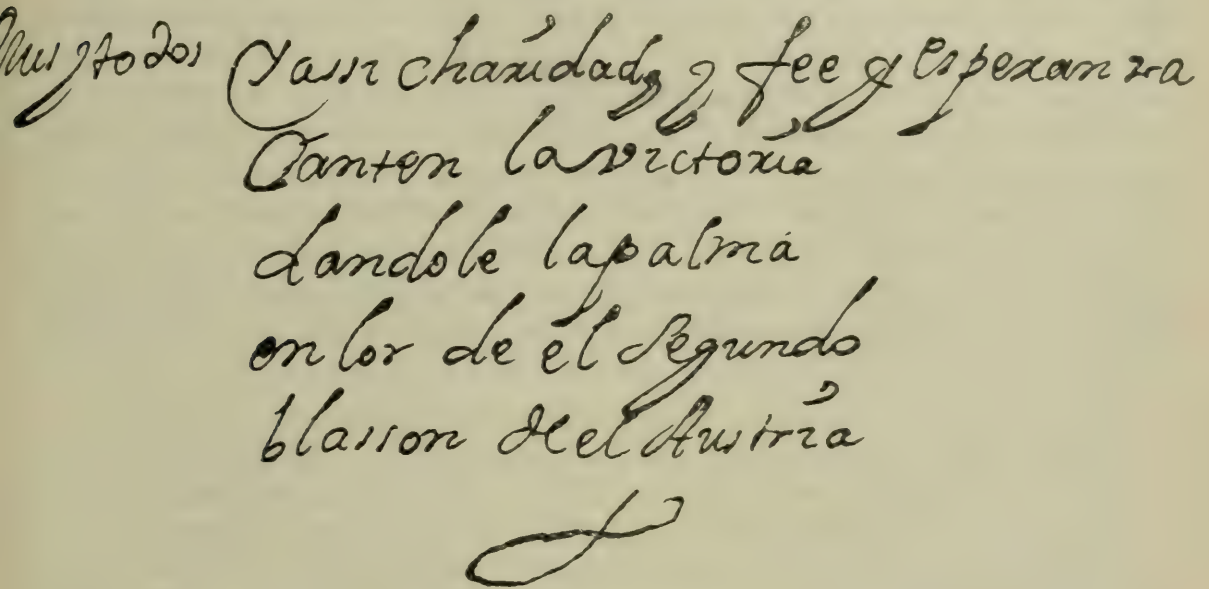 Mus y todos Y assi charidad, y fee y esperanza
Canten la victoria
dandole la palma
en lor de el Segundo
blasson de el Austria